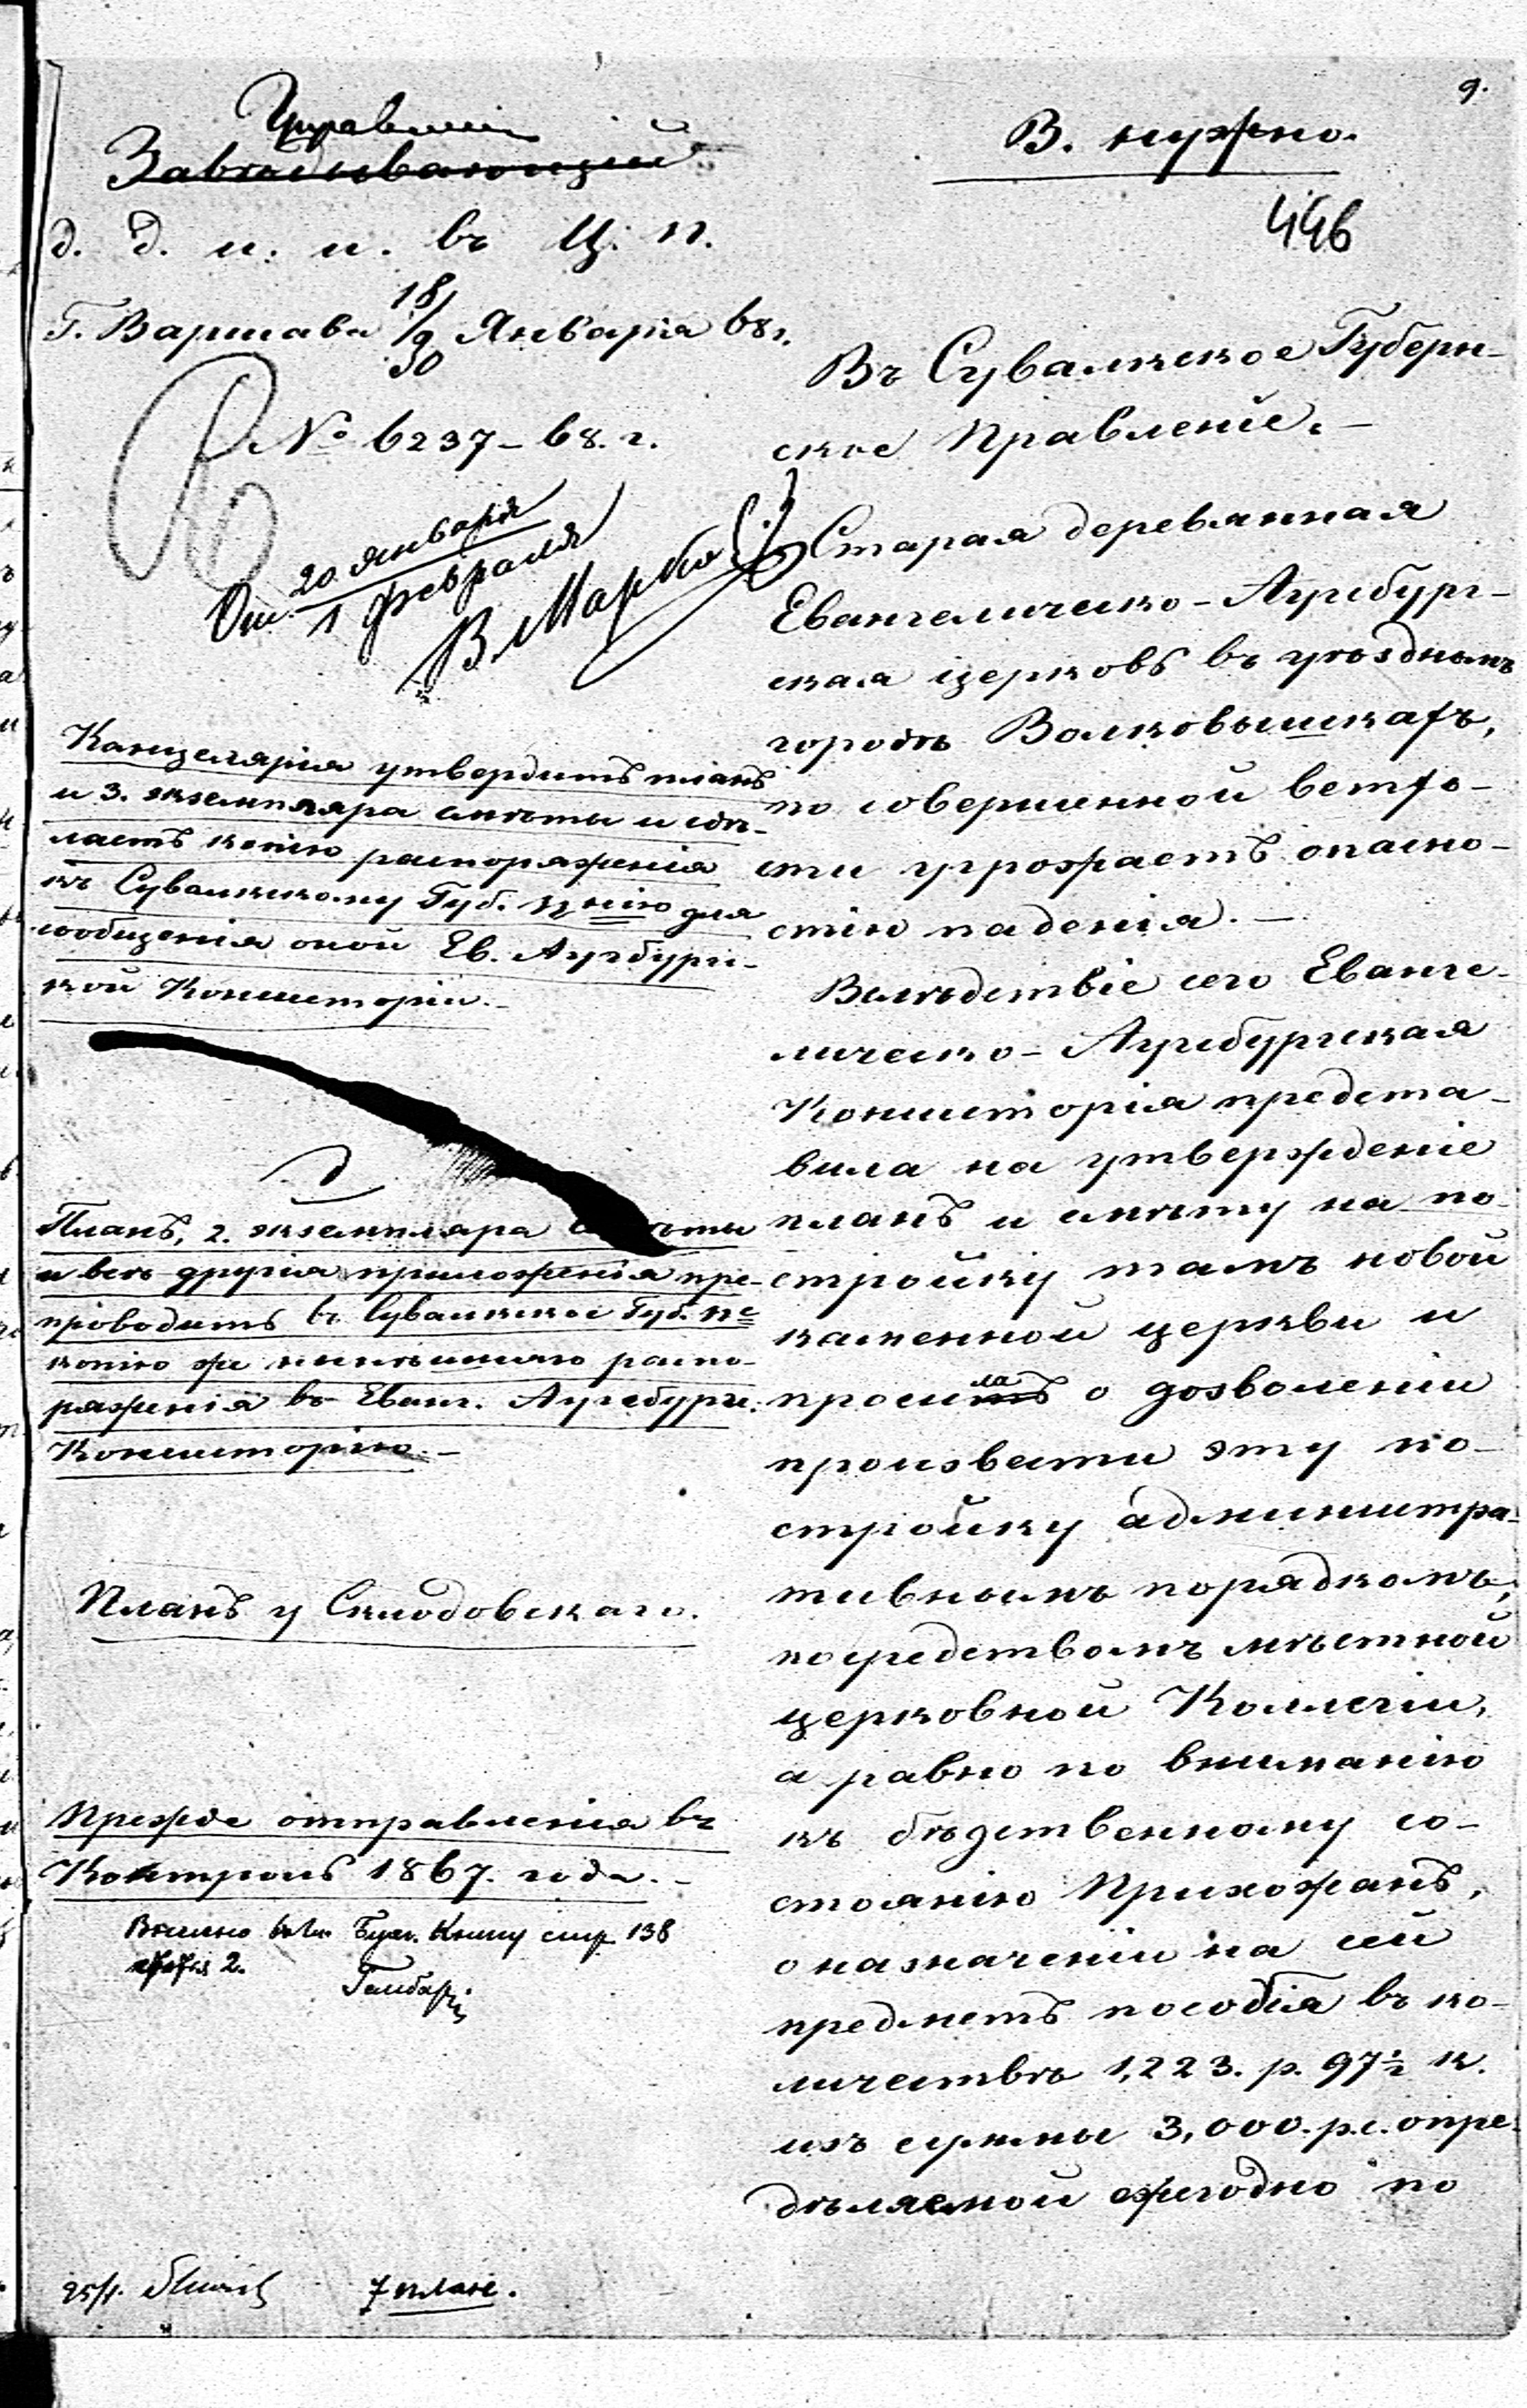 9.
Управляющій
Завѣдывающій
д. д. и. и. въ Ц. П.
Г. Варшава 18/30 Января 68 г.
№ 6237-68. г.
От. 20 января
1 февраля
В. нужно.
446
Въ Сувалкское Губерн-
ское Правленіе. —
Старая деревянная
Евангелическо-Аугсбург-
ская церковь въ уѣздномъ
городѣ Волковышкахъ,
по совершенной ветхо-
сти угрожаетъ опасно-
стію паденія. —
Вслѣдствіе сего Еванге-
лическо-Аугсбургская
Консисторія предста-
вила на утвержденіе
планъ и смѣту на по-
стройку тамъ новой
каменной церкви и
просила о дозволеніи
произвести эту по-
стройку администра-
тивнымъ порядкомъ,
посредствомъ мѣстной
церковной Коллегіи,
а равно по вниманію
къ бѣдственному со-
стоянію Прихожанъ,
о назначеніи на сей
предметъ пособія въ ко-
личествѣ 1,223. р. 97½ к.
изъ суммы 3,000. р. с. опре-
дѣляемой ежегодно по
Канцелярія утвердитъ планъ
и 3. экземпляра смѣты и сдѣ-
лаетъ копію распоряженія
къ Сувалкскому Губ. П-нію для
сообщенія оной Ев. Аугсбургс-
кой Консисторіи. —
Планъ, 2. экземпляра смѣты
и всѣ другія приложенія пре-
проводить въ Сувалкское Губ. П-е
копію же нынѣшняго распо-
ряженія въ Еванг. Аугсбург.
Консисторію. —
Планъ у Склодовскаго.
Прежде отправленія въ
Контроль 1867. года. —
Книгу стр 138
2.
25/1.
7 план.